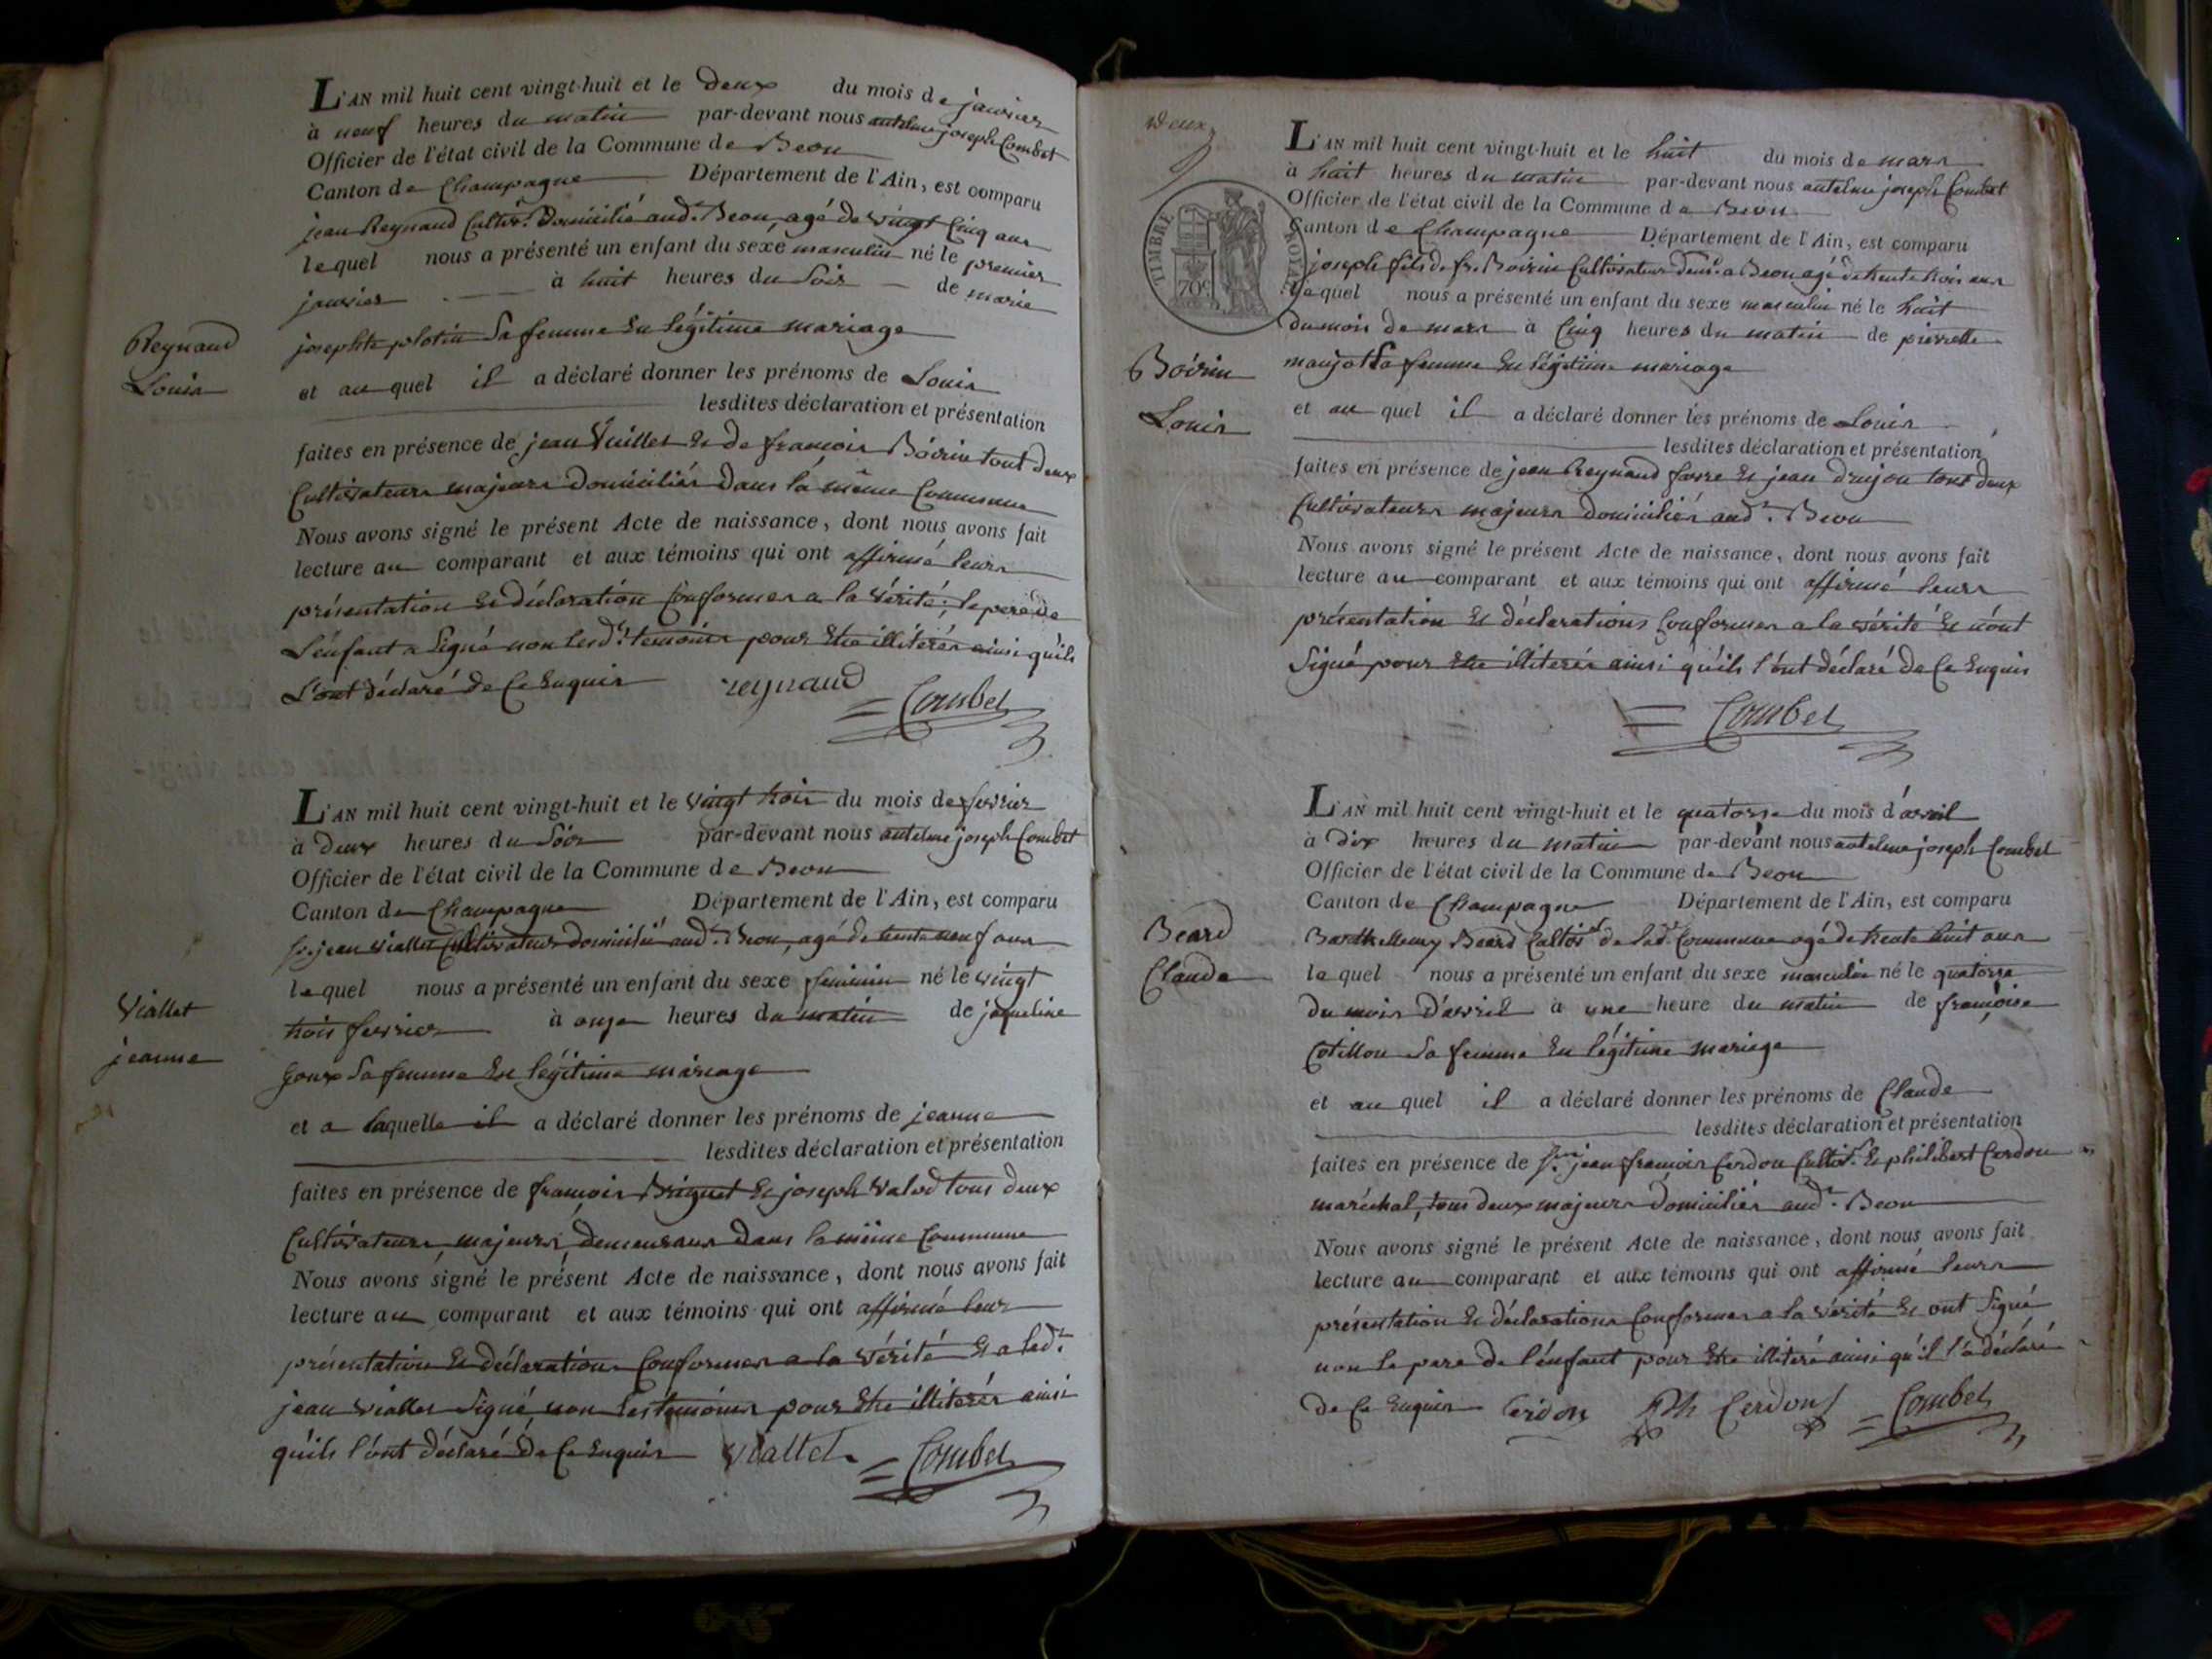 L'AN mil huit cent vingt-huit et le deux du mois de janvier
à neuf heures du matin par-devant nous antelme joseph Combet
Officier de l'état civil de la Commune de Beon
Canton de Champagne Département de l'Ain, est comparu
jean Reynaud Cultivr. domicilié aud. Beon, agé de vingt Cinq ans
lequel nous a présenté un enfant du sexe masculin né le premier
janvier à huit heures du soir de marie
Reynaud
josephte plotin Sa femme En légitime mariage
Louis
et au quel il a déclaré donner les prénoms de Louis
lesdites déclaration et présentation
faites en présence de jean Vuillet Et de francois Boivin tout deux
Cultivateurs majeurs Domiciliés dans la même Commune
Nous avons signé le présent Acte de naissance, dont nous avons fait
lecture au comparant et aux témoins qui ont affirmé leurs
présentation Et déclaration Conformes a la vérité; le pere de
L'énfant a Signé non lesdts. temoins pour Etre illitérés ainsi qu'ils
L'ont déclaré de Ce Enquis reynaud
Combet
L'AN mil huit cent vingt-huit et le vingt trois du mois de fevrier
à deux heures du Soir par-devant nous antelme joseph Combet
Officier de l'état civil de la Commune de Beon
Canton de Champagne Département de l'Ain, est comparu
jean viallet Cultivateur domicilié aud. Beon, agé de trente neuf ans
lequel nous a présenté un enfant du sexe feminin né le vingt
Viallet
trois fevrier à onze heures du matin de jaqueline
jeanne
goux Sa femme En légitime mariage
et a laquelle il a déclaré donner les prénoms de jeanne
lesdites déclaration et présentation
faites en présence de francois Briguet Et joseph Valod tous deux
Cultivateurs, majeurs, demeurans dans la même Commune
Nous avons signé le présent Acte de naissance, dont nous avons fait
lecture au comparant et aux témoins qui ont affirmé leur
présentation Et déclaration Conformes a la vérité Et a led.
jean viallet Signé, non les témoins pour Etre illiterés ainsi
qu'ils l'ont déclaré de Ce Enquis viallet Combet
deux
L'AN mil huit cent vingt-huit et le huit du mois de mars
à huit heures du matin par-devant nous antelme joseph Combet
Officier de l'état civil de la Commune de Beon
Canton de Champagne Département de l'Ain, est comparu
TIMBRE ROYAL
70c
joseph fils de fr. Boivin Cultivateur demt. a Beon agé de trente trois ans
lequel nous a présenté un enfant du sexe masculin né le huit
du mois de mars à Cinq heures du matin de pierrette
Boivin
maujot Sa femme En légitime mariage
Louis
et au quel il a déclaré donner les prénoms de Louis
lesdites déclaration et présentation
faites en présence de jean Reynaud favre Et jean drujon tous deux
Cultivateurs majeurs domiciliés aud. Beon
Nous avons signé le présent Acte de naissance, dont nous avons fait
lecture au comparant et aux témoins qui ont affirmé leurs
présentation Et déclarations Conformes a la vérité Et n'ont
Signé pour Etre illiterés ainsi qu'ils l'ont déclaré de Ce Enquis
Combet
L'AN mil huit cent vingt-huit et le quatorze du mois d'avril
à dix heures du matin par-devant nous antelme joseph Combet
Officier de l'état civil de la Commune de Beon
Canton de Champagne Département de l'Ain, est comparu
Beard
Barthellemy Beard Cultivr. de lad. Commune agé de trente huit ans
Claude
lequel nous a présenté un enfant du sexe masculin né le quatorze
du mois d'avril à une heure du matin de françoise
Cotillon Sa femme En légitime mariage
et au quel il a déclaré donner les prénoms de Claude
lesdites déclaration et présentation
faites en présence de jean francois Cerdon Cultivr. Et philibert Cerdon
maréchal, tous deux majeurs domiciliés aud. Beon
Nous avons signé le présent Acte de naissance, dont nous avons fait
lecture au comparant et aux témoins qui ont affirmé leurs
présentation Et déclarations Conformes a la vérité Et ont Signé
non le pere de l'énfant pour Etre illiteré ainsi qu'il l'a déclaré
de Ce Enquis Cerdon Ph Cerdon Combet